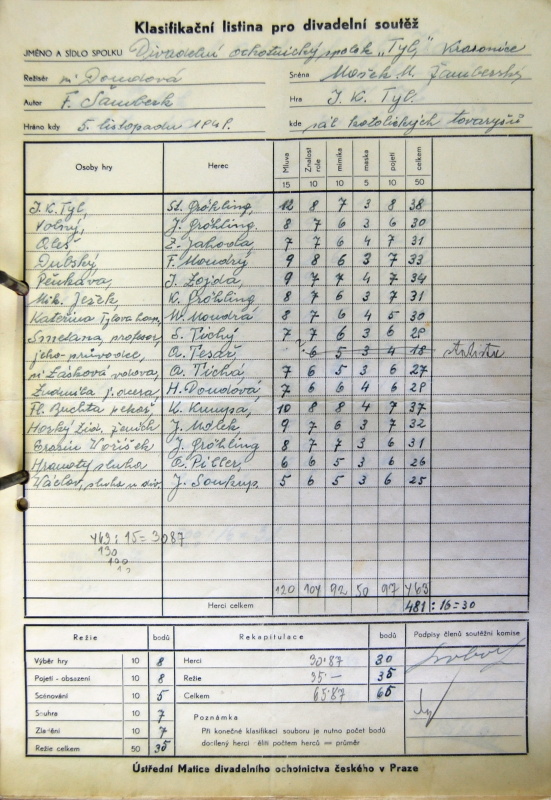 Klasifikační listina pro divadelní soutěž
JMÉNO A SÍDLO SPOLKU Divadelní ochotnický spolek „Tyl" Krasonice
Režisér M. Doudová Scéna Mošek M. Žamberský
Autor F. Šamberk Hra J. K. Tyl.
Hráno kdy 5. listopadu 1941. kde sál katolických tovaryšů
Osoby hry Herec Mluva 15 Znalost role 10 mimika 10 maska 5 pojetí 10 celkem 50
J. K. Tyl, St. Gröhling, 12 8 7 3 8 38
Volný, J. Gröhling. 8 7 6 3 6 30
Oleš Z. Jahoda, 7 7 6 4 7 31
Dubský F. Moudrý 9 8 6 3 7 33
Pěnkava, J. Lojda, 9 7 7 4 7 34
Mik. Jezek K. Gröhling 8 7 6 3 7 31
Kateřina Tylova W. Moudrá 8 7 6 4 5 30
Smetana, profesor, S. Tichý 7 7 6 3 6 29
jeho průvodce, A. Tesař, 6 5 3 4 18
Lásková vdova, A. Tichá 7 6 5 3 6 27
Ludmila j. dcera, H. Doudová 7 6 6 4 6 29
Fl. Buchta pekař K. Krumpa, 10 8 8 4 7 37
Horký Zid. ženich J. Málek 9 7 6 3 7 32
Erasim Voříšek J. Gröhling 8 7 7 3 6 31
Hranatý sluha A. Piller, 6 6 5 3 6 26
Václav, sluha u div. J. Soukup. 5 6 5 3 6 25
463 : 15 = 3087
130
120 104 92 50 97 463
Herci celkem 481 : 16 = 30
Režie bodů Rekapitulace bodů Podpisy členů soutěžní komise
Výběr hry 10 8 Herci 30·87 30
Pojetí - obsazení 10 8 Režie 35·— 35
Scénování 10 5 Celkem 65·87 65
Souhra 10 7
Poznámka
Zladění 10 7 Při konečné klasifikaci souboru je nutno počet bodů
Režie celkem 50 35 docílený herci děliti počtem herců = průměr
Ústřední Matice divadelního ochotnictva českého v Praze